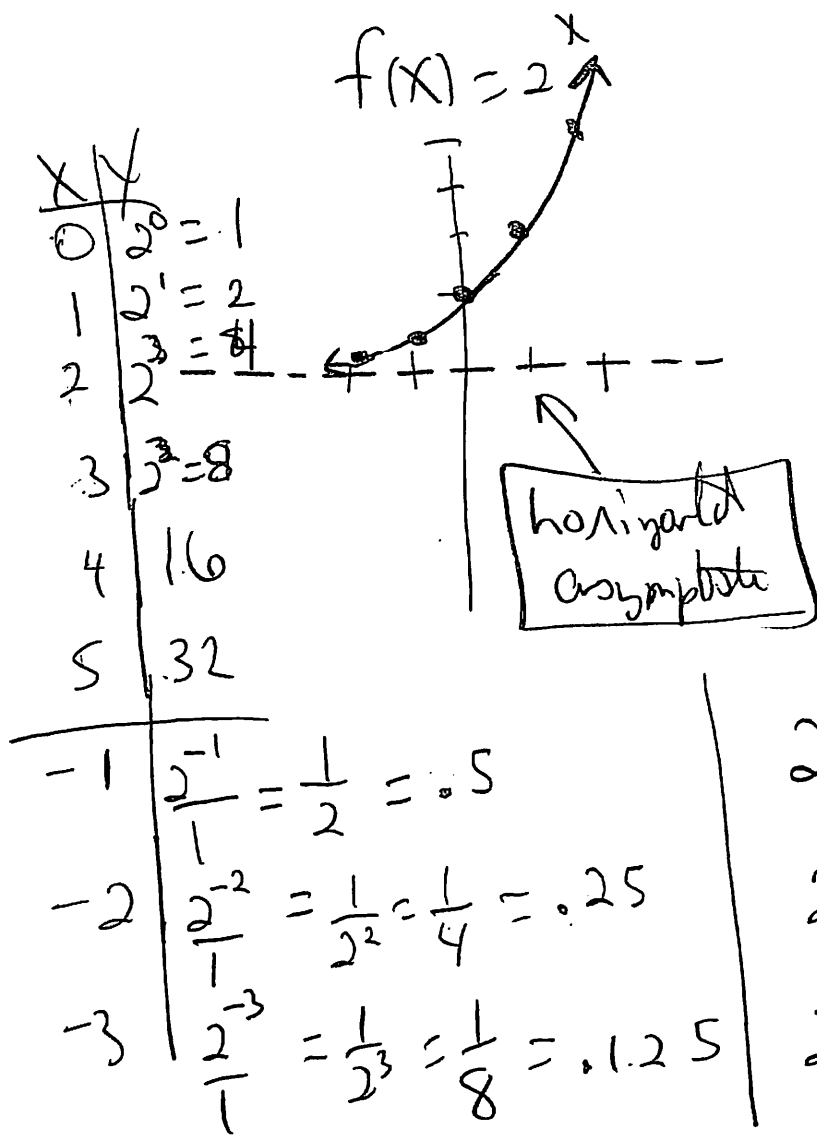 f(x) = 2^x
x | y
0 | 2^0 = 1
1 | 2^1 = 2
2 | 2 = 4
3 | 2 = 8
4 | 16
5 | 32
-1 | 2^-1/1 = 1/2 = .5
-2 | 2^-2/1 = 1/2^2 = 1/4 = .25
-3 | 2^-3/1 = 1/2^3 = 1/8 = .125
horizontal
asymptote